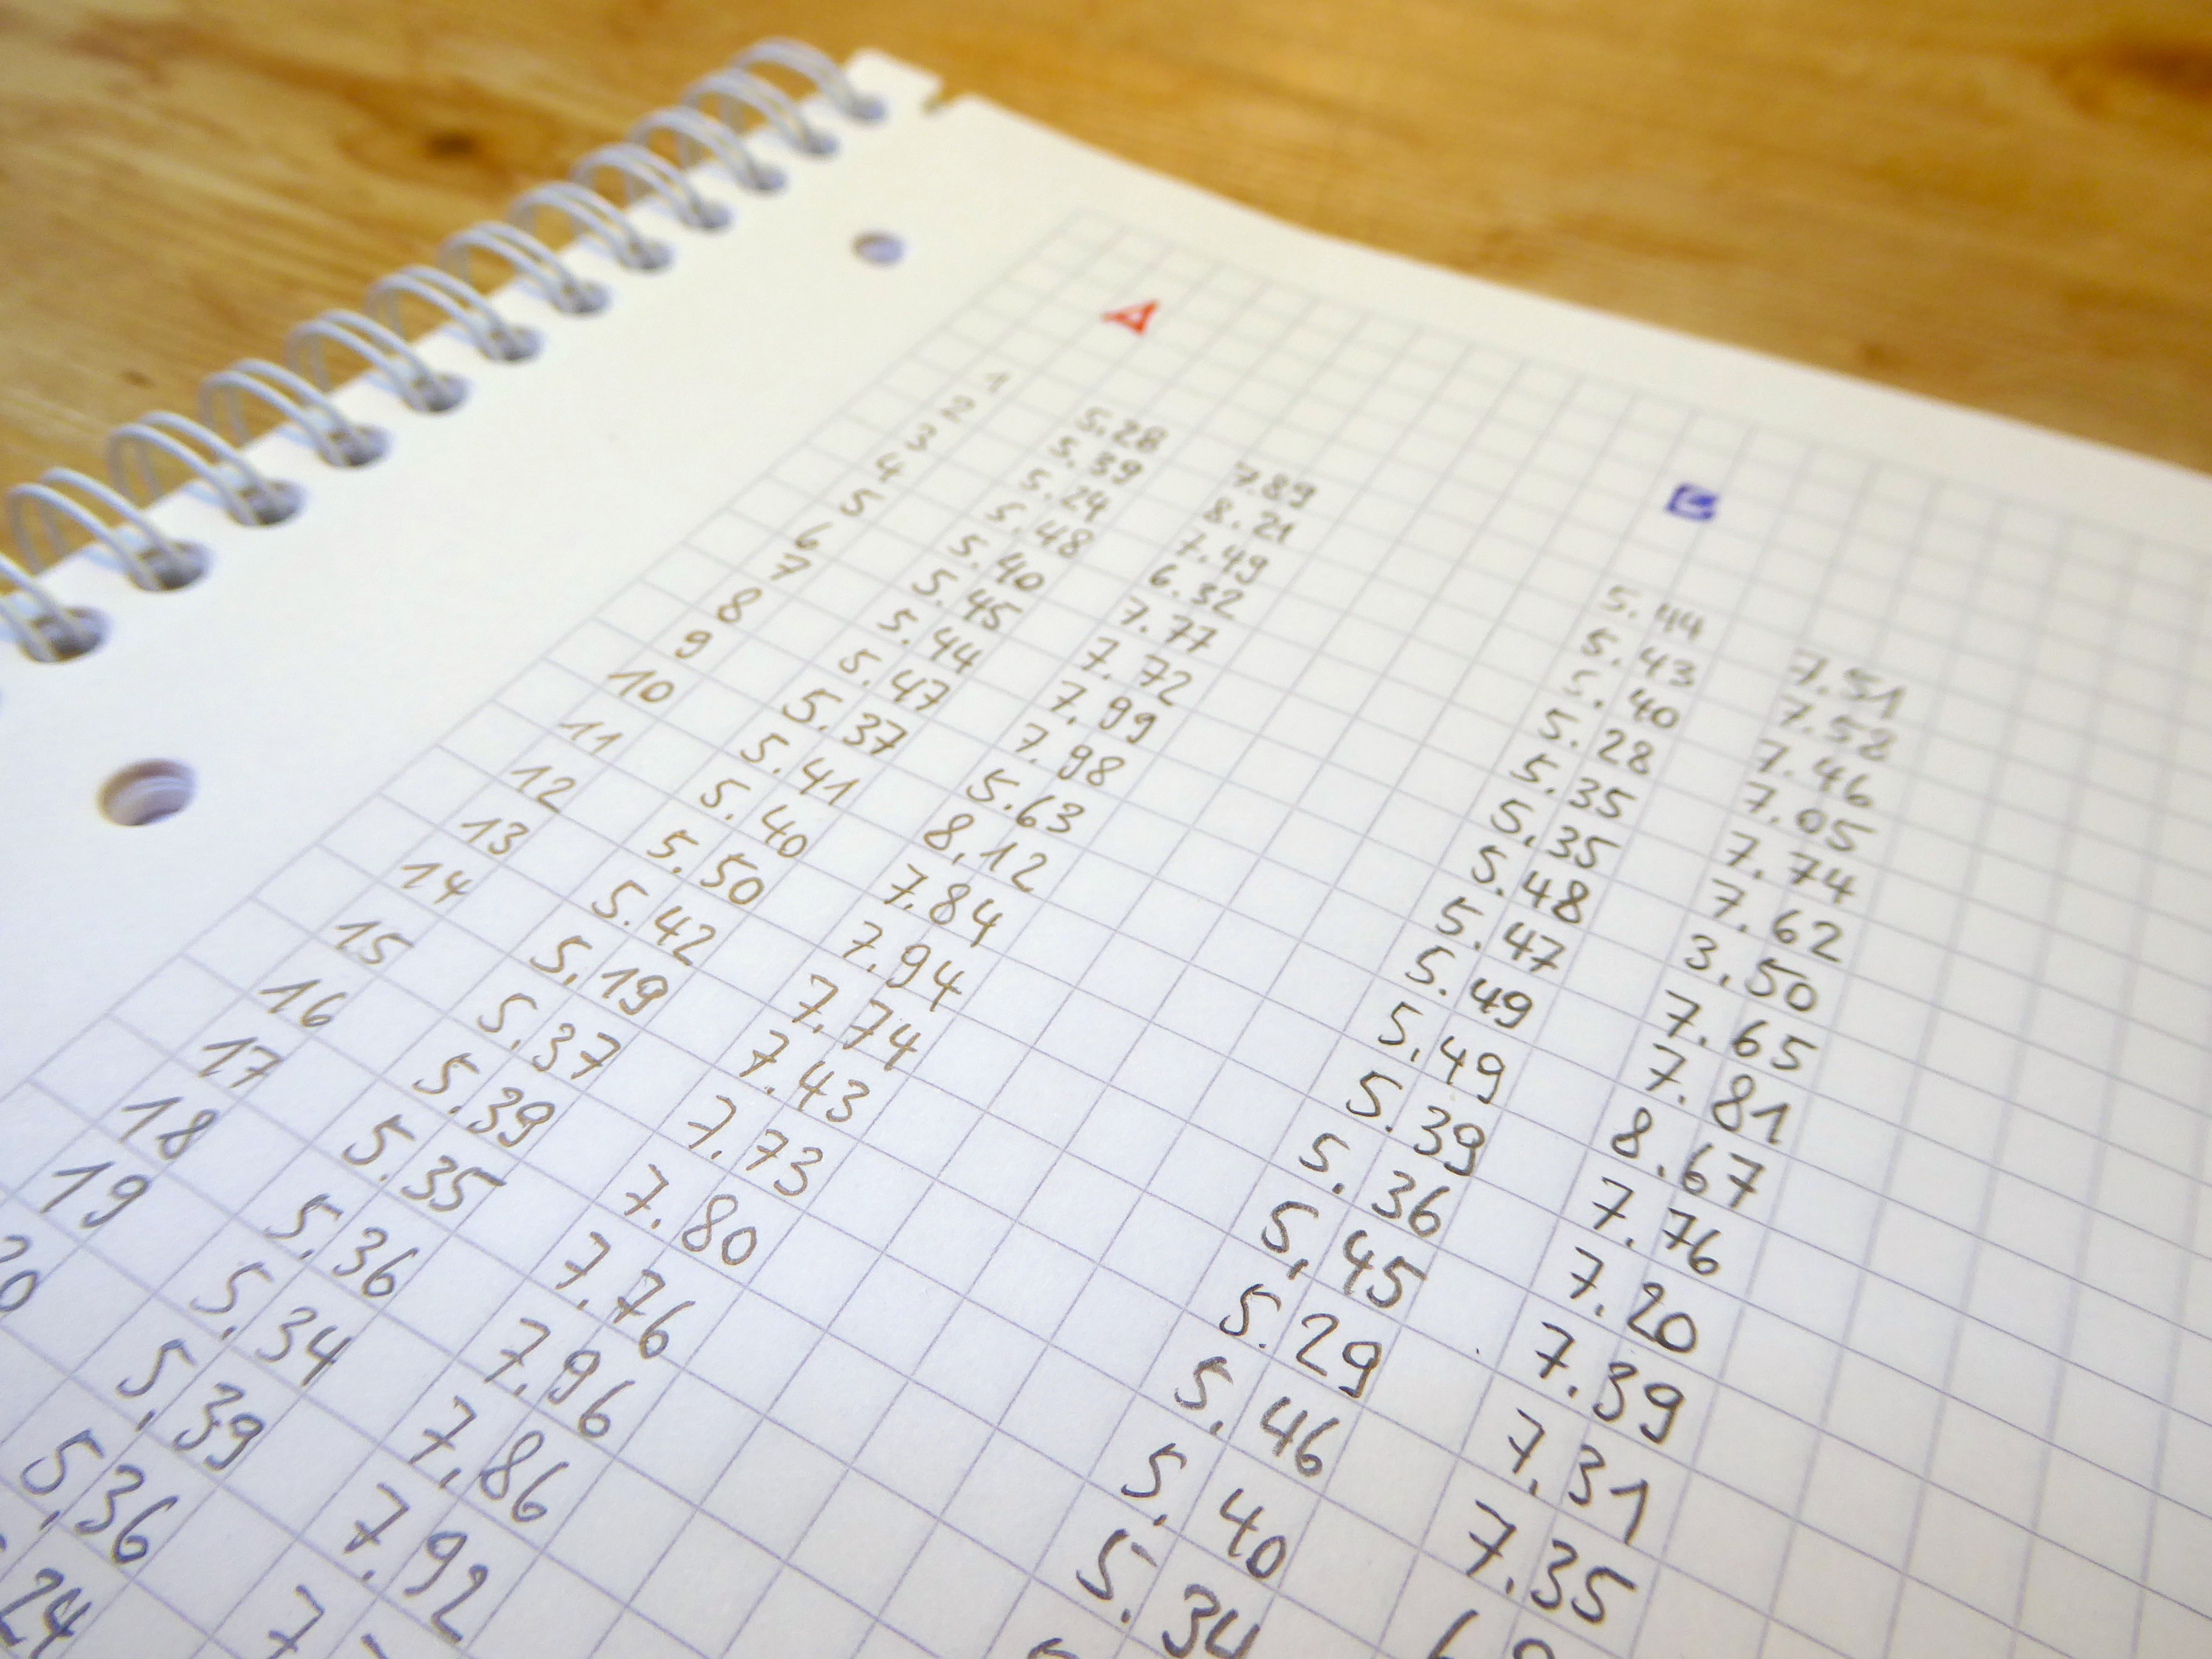 A B
1 5.28 7.89 5.44 7.51
2 5.39 8.21 5.43 7.58
3 5.24 7.49 5.40 7.46
4 5.48 6.32 5.28 7.05
5 5.40 7.77 5.35 7.74
6 5.45 7.72 5.35 7.62
7 5.44 7.99 5.48 3.50
8 5.47 7.98 5.47 7.65
9 5.37 5.63 5.49 7.81
10 5.41 8.12 5.49 8.67
11 5.40 7.84 5.39 7.76
12 5.50 7.94 5.36 7.20
13 5.42 7.74 5.45 7.39
14 5.19 7.43 5.29 7.31
15 5.37 7.73 5.46 7.35
16 5.39 7.80 5.40
17 5.35 7.76 5.34
18 5.36 7.96
19 5.34 7.86
20 5.39 7.92
5.36 7.
24